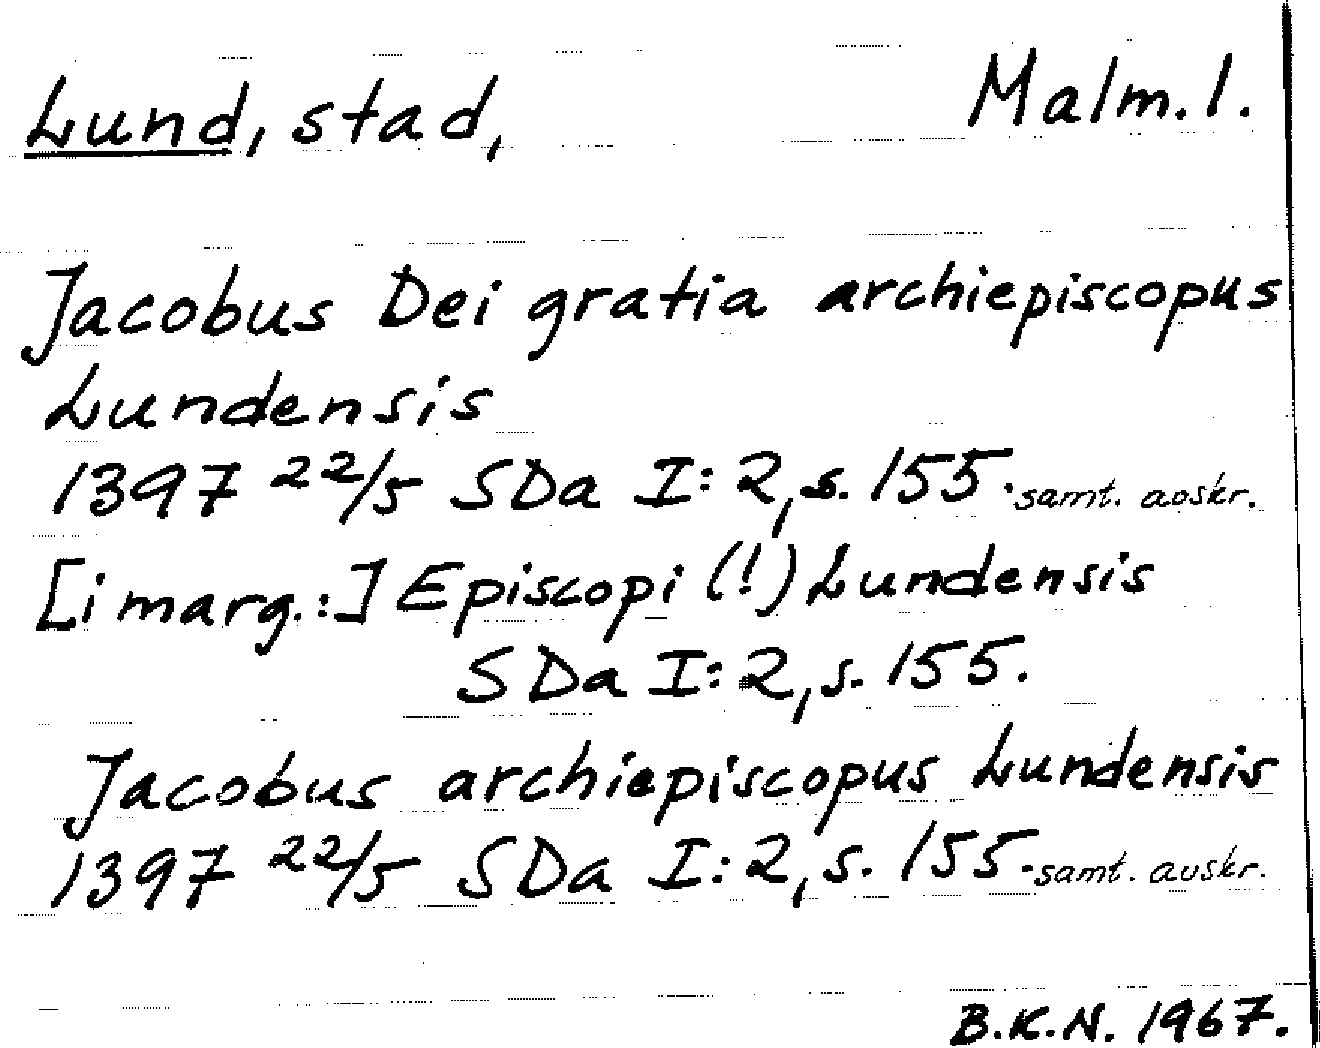 Lund, stad, Malm. l.
Jacobus Dei gratia archiepiscopus
Lundensis
1397 22/5 SDa I:2, s. 155. samt. avskr.
[i marg.:] Episcopi (!) Lundensis
SDa I:2, s. 155.
Jacobus archiepiscopus Lundensis
1397 22/5 SDa I:2, s. 155. samt. avskr.
B.K.N. 1967.